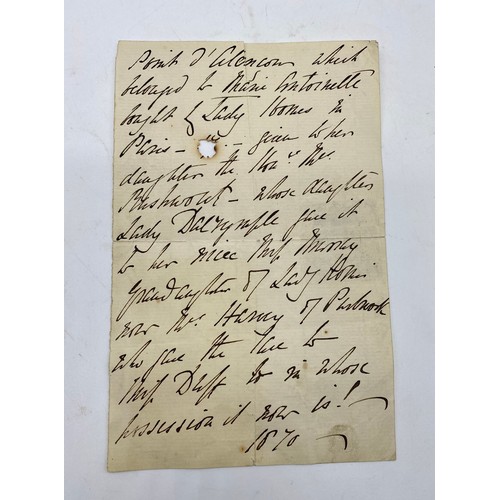 Point d'Alencon which
belonged to Marie Antoinette
bought by Lady Homes in
Paris — — given to her
daughter the Honble Mrs
Rushworth — whose daughter
Lady Dalrymple gave it
to her niece Miss Murray
Grandaughter of Lady Homes
now Mrs Harvey of
who gave the lace to
Miss Duff in whose
possession it now is! —
1870 —